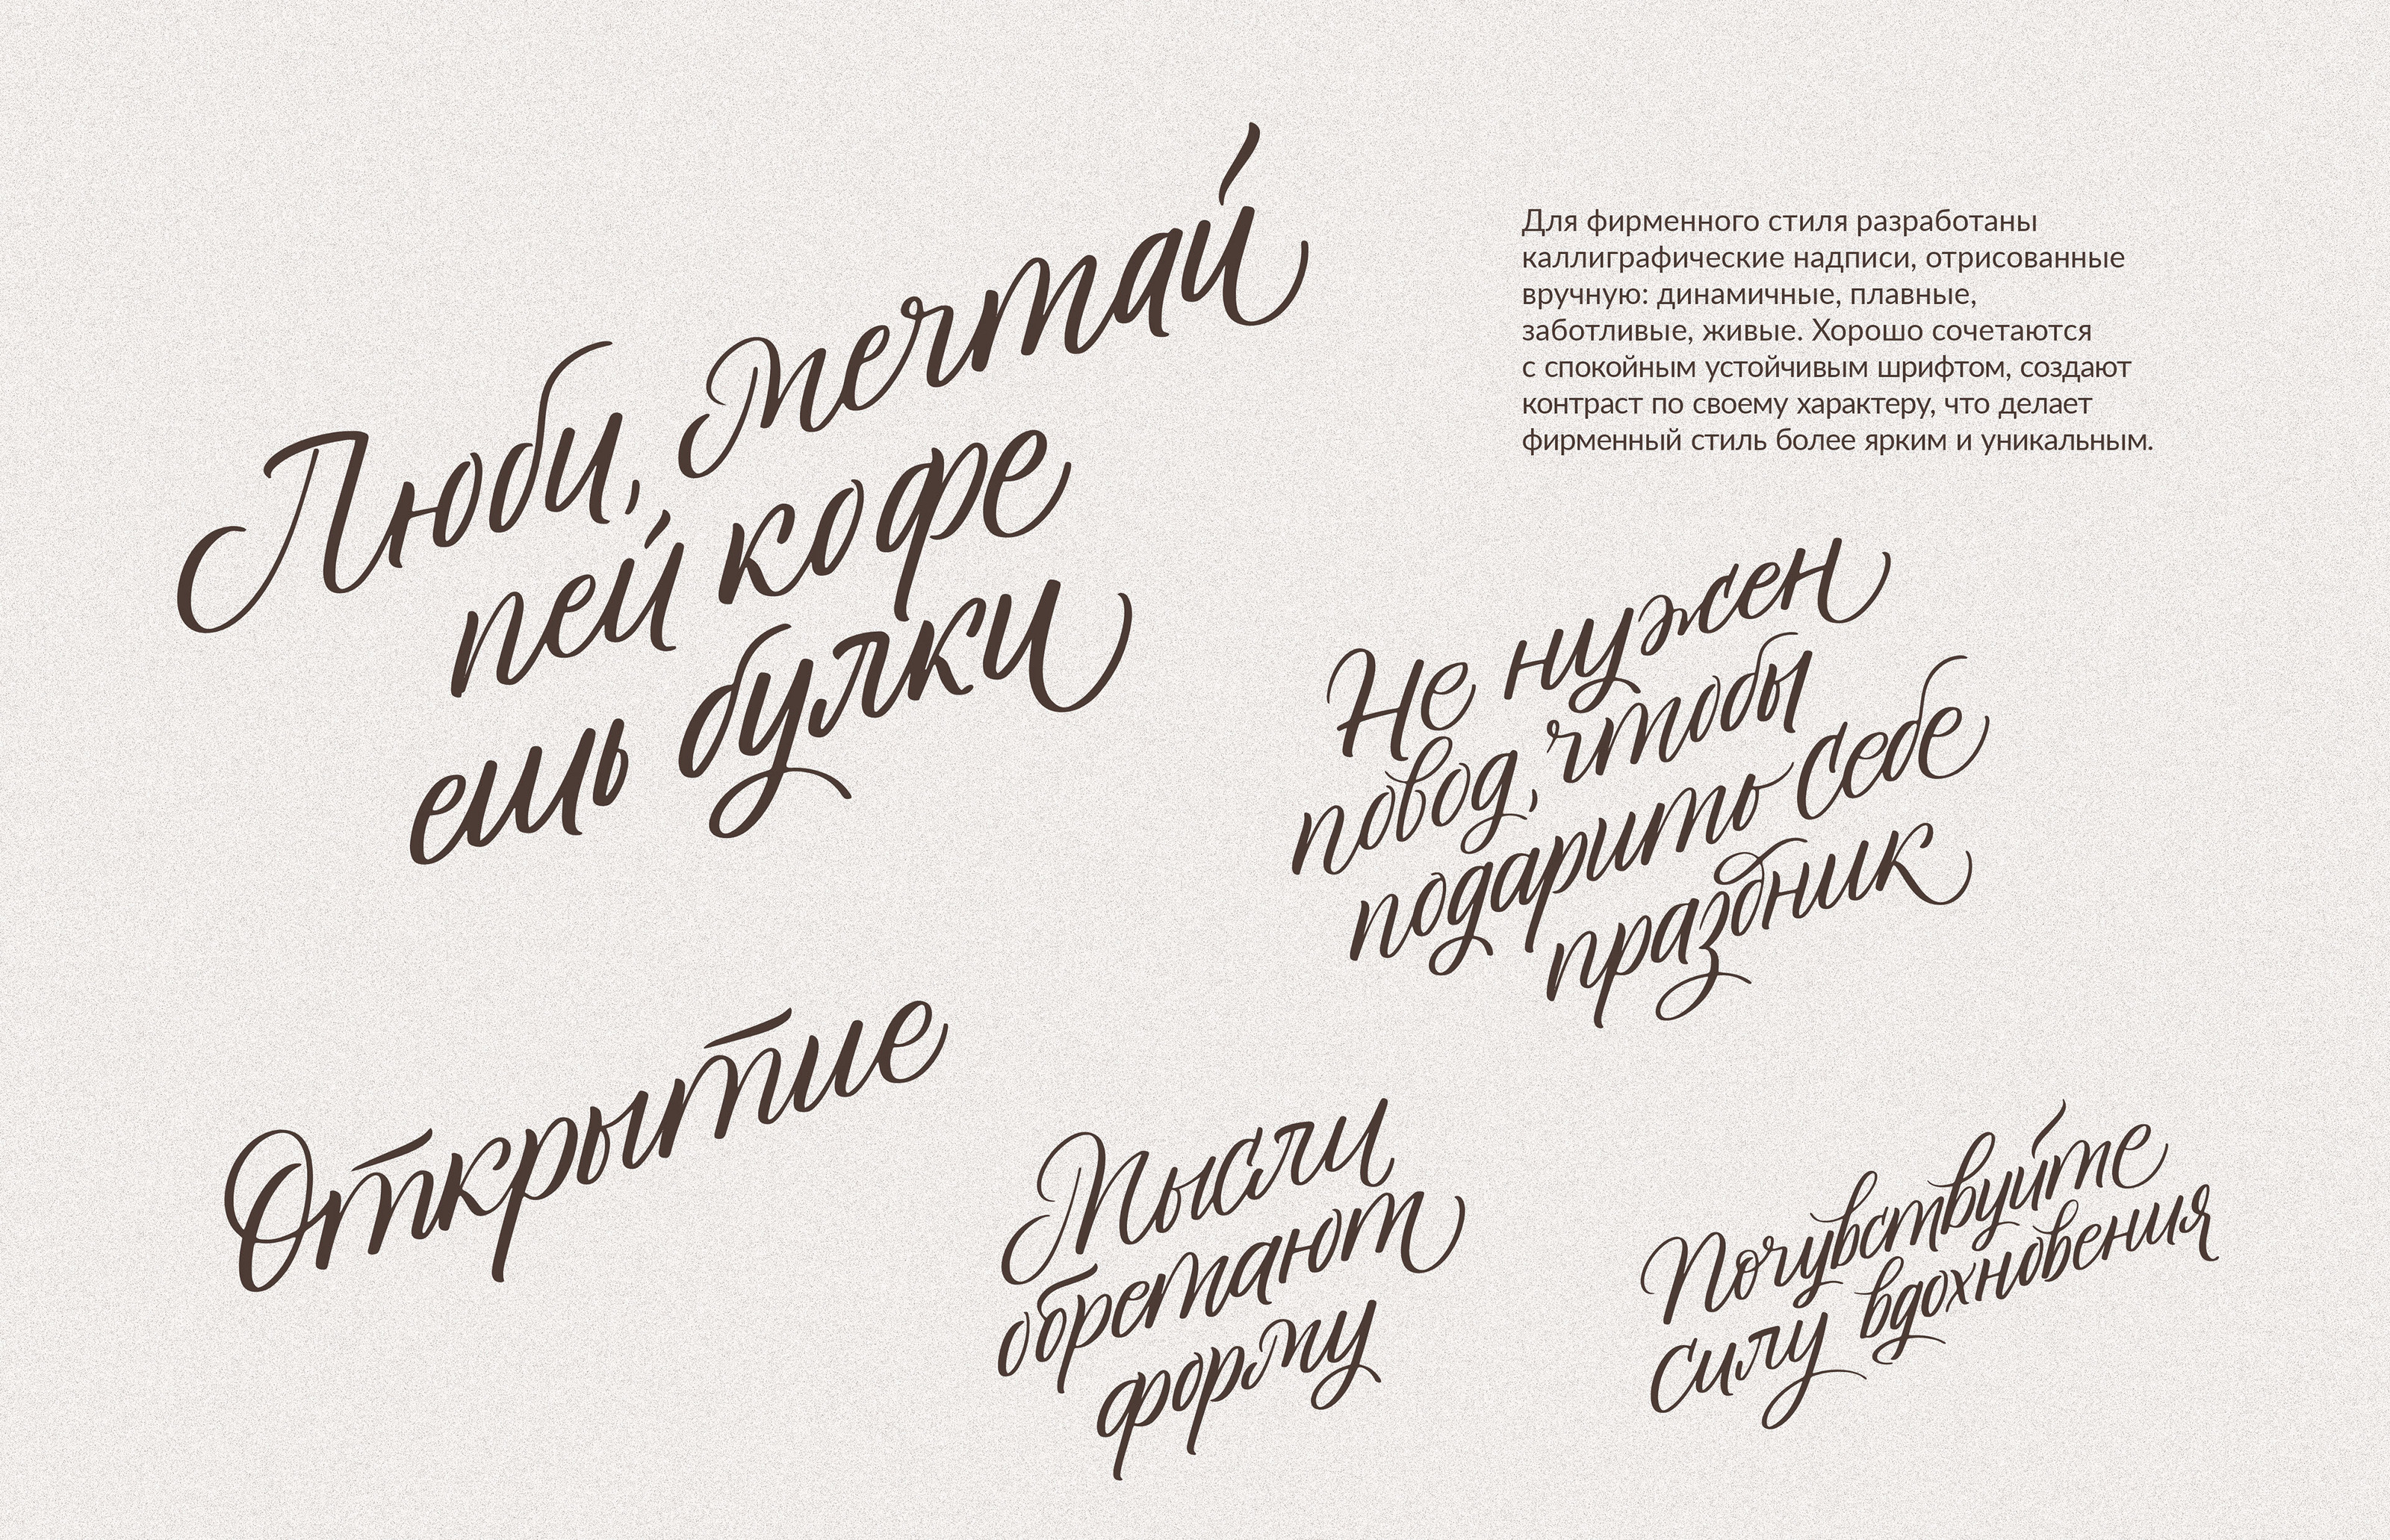 Люби, мечтай
пей кофе
ешь булки
Для фирменного стиля разработаны
каллиграфические надписи, отрисованные
вручную: динамичные, плавные,
заботливые, живые. Хорошо сочетаются
с спокойным устойчивым шрифтом, создают
контраст по своему характеру, что делает
фирменный стиль более ярким и уникальным.
Не нужен
повод, чтобы
подарить себе
праздник
Открытие
Мысли
обретают
форму
Почувствуйте
силу вдохновения